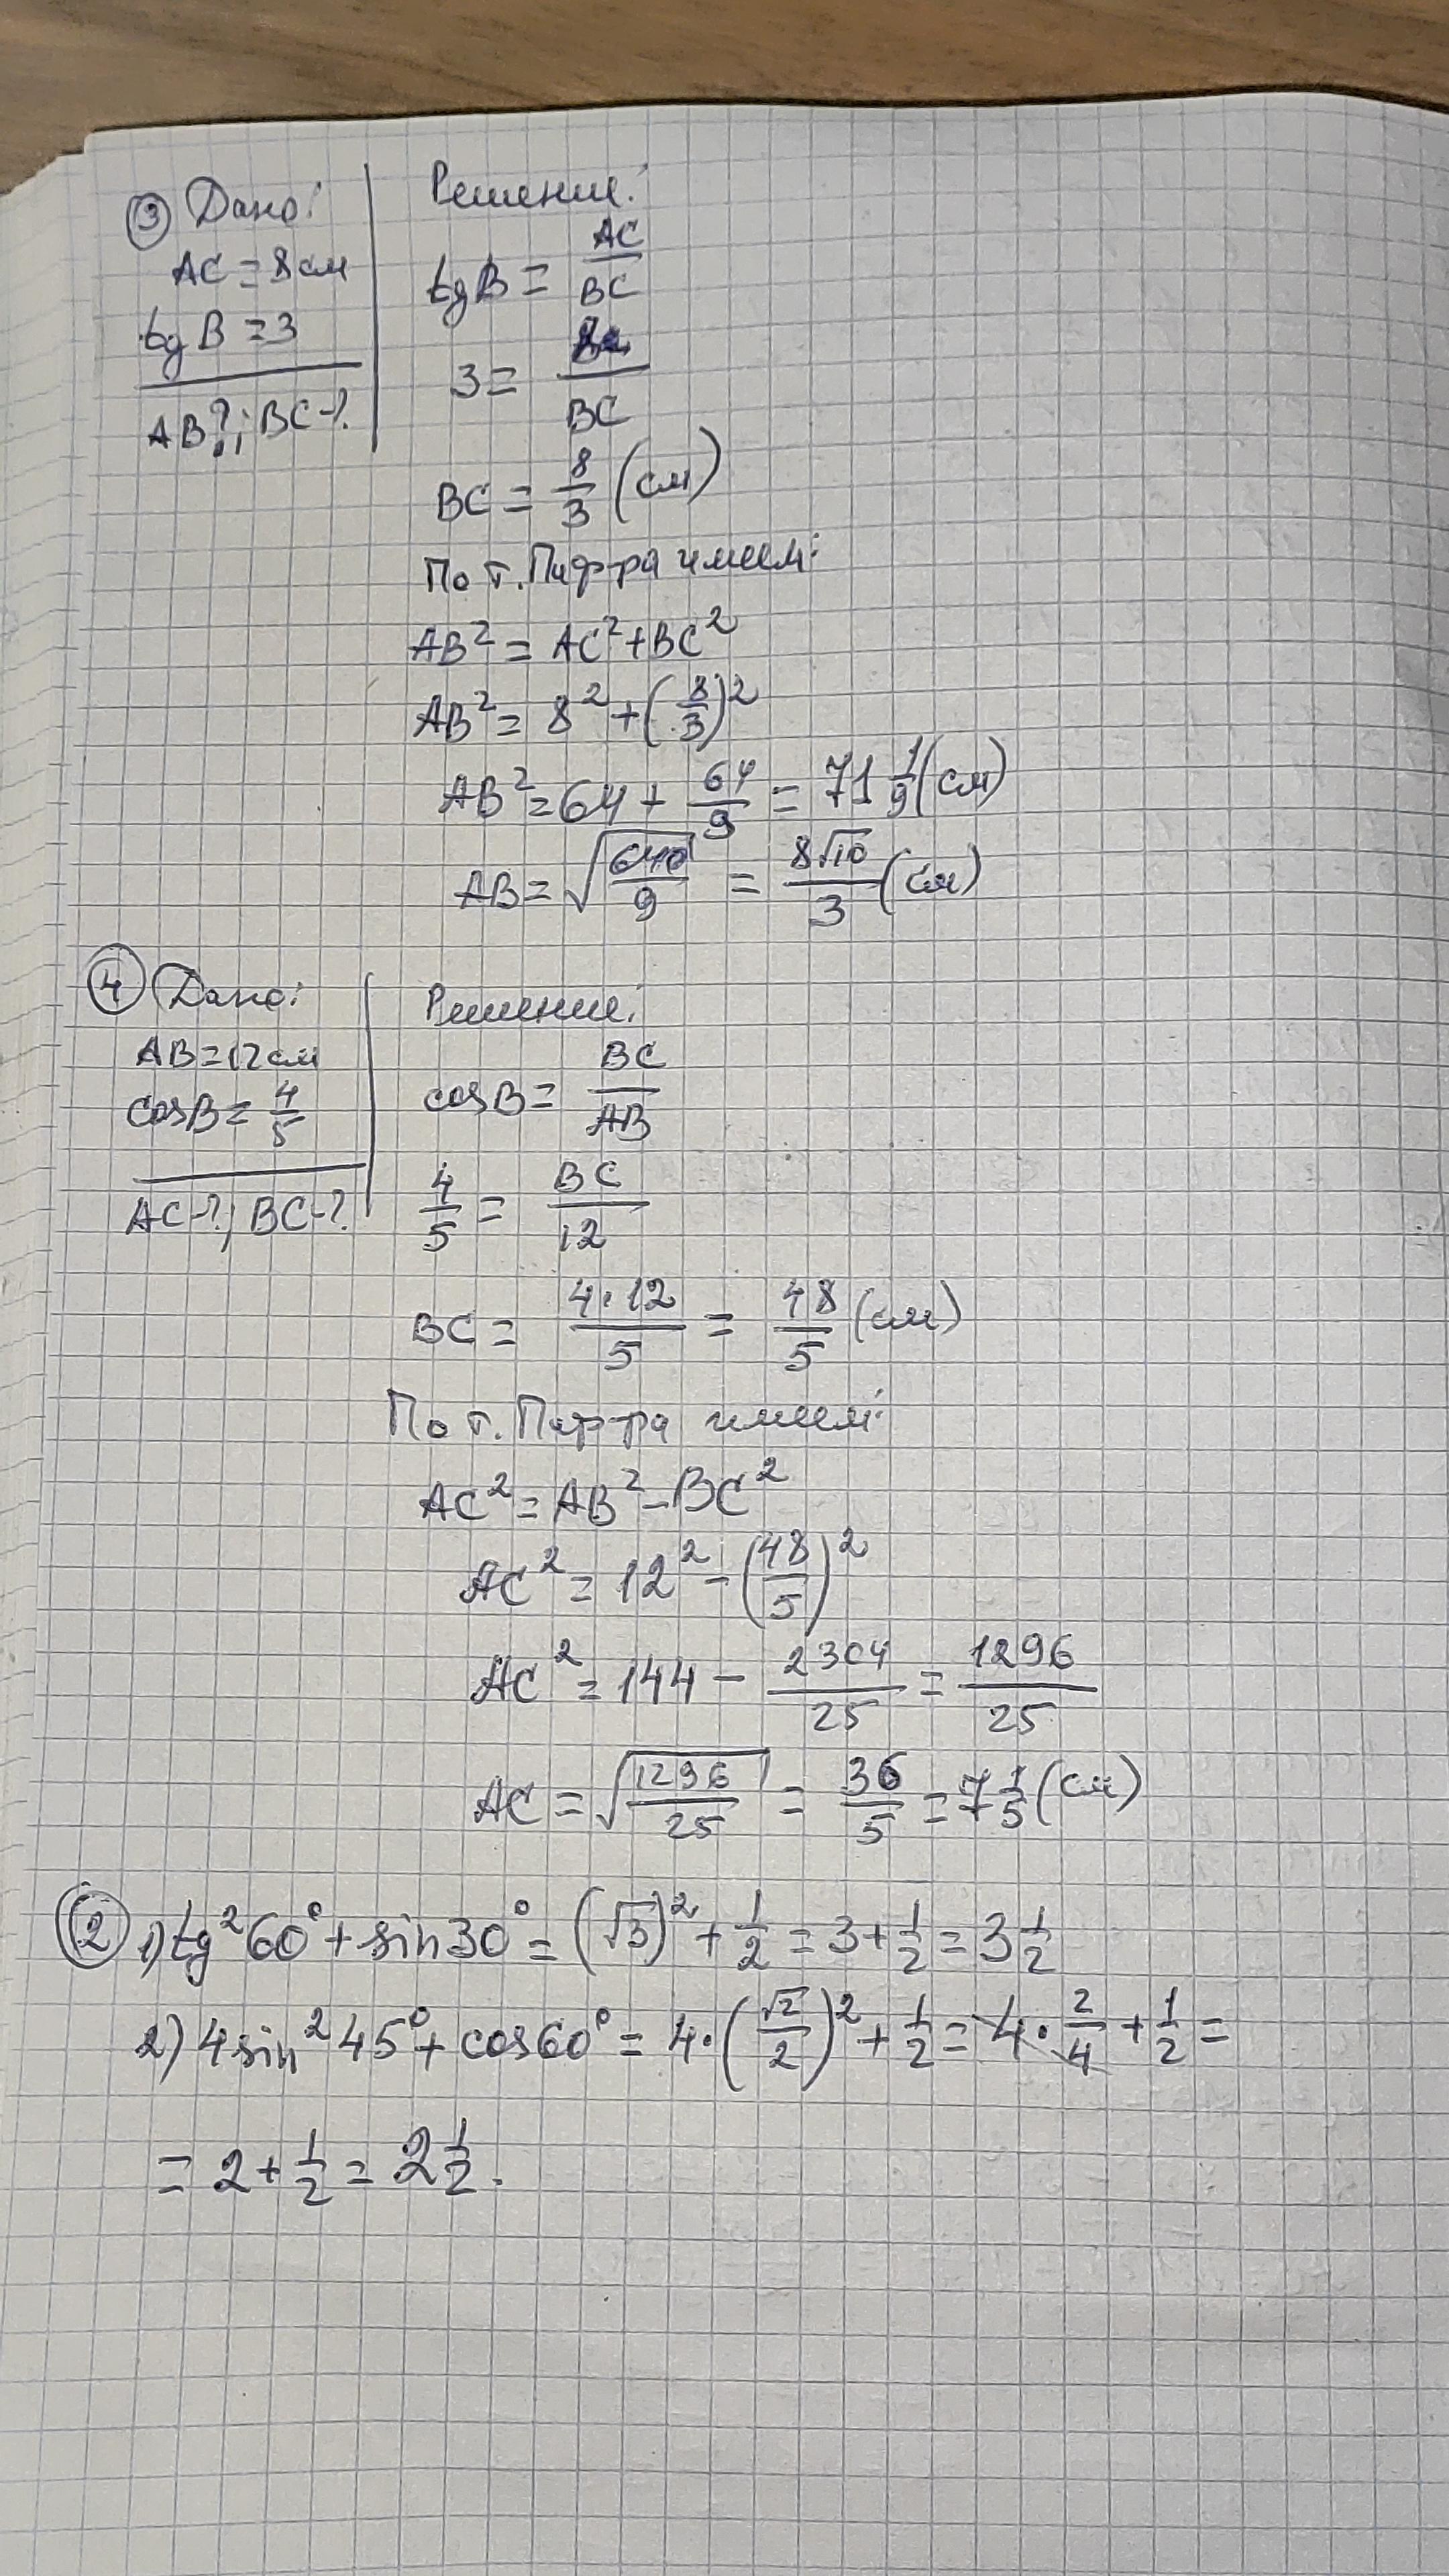 ③ Дано:
AC = 8 см
tg B = 3
AB-?; BC-?
Решение:
tg B = AC/BC
3 = 8/BC
BC = 8/3 (см)
По т. Пиф-ра имеем:
AB² = AC² + BC²
AB² = 8² + (8/3)²
AB² = 64 + 64/9 = 71 1/9 (см)
AB = √(640/9) = 8√10/3 (см)
④ Дано:
AB = 12 см
cos B = 4/5
AC-?; BC-?
Решение:
cos B = BC/AB
4/5 = BC/12
BC = 4·12/5 = 48/5 (см)
По т. Пиф-ра имеем:
AC² = AB² - BC²
AC² = 12² - (48/5)²
AC² = 144 - 2304/25 = 1296/25
AC = √(1296/25) = 36/5 = 7 1/5 (см)
② 1) tg²60° + sin30° = (√3)² + 1/2 = 3 + 1/2 = 3 1/2
2) 4sin²45° + cos60° = 4·(√2/2)² + 1/2 = 4·2/4 + 1/2 =
= 2 + 1/2 = 2 1/2.